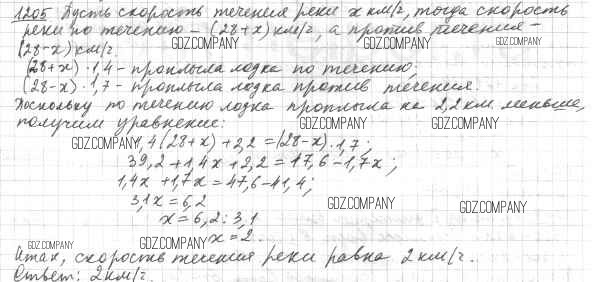 1205 Пусть скорость течения реки x км/г, тогда скорость
реки по течению – (28+x) км/г, а против течения –
GDZ.COMPANY GDZ.COMPANY
(28-x) км/г.
(28+x)·1,4 – проплыла лодка по течению;
(28-x)·1,7 – проплыла лодка против течения.
Поскольку по течению лодка проплыла на 2,2 км меньше,
получим уравнение:
GDZ.COMPANY GDZ.COMPANY
GDZ.COMPANY ,4(28+x)+2,2=(28-x)·1,7;
39,2+1,4x+2,2=17,6-1,7x;
1,4x+1,7x=47,6-41,4;
3,1x=6,2
GDZ.COMPANY GDZ.COMPANY
x=6,2:3,1
GDZ.COMPANY GDZ.COMPANY x=2.
Итак, скорость течения реки равна 2 км/г.
Ответ: 2 км/г.